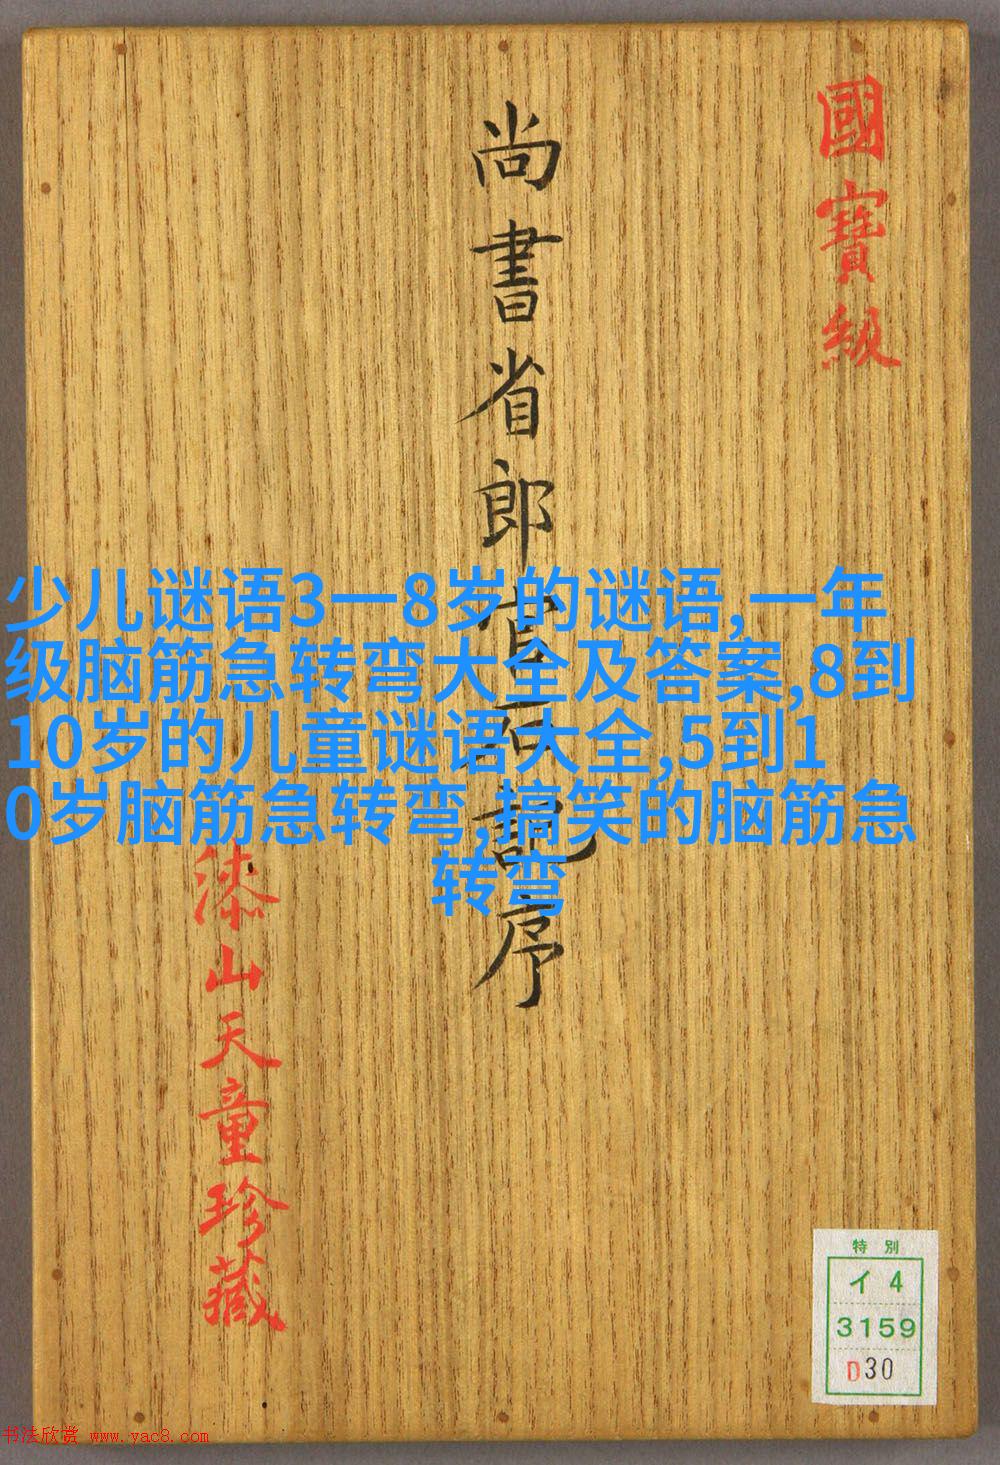 國寶級
尚書省郎官石記序
少儿谜语3一8岁的谜语,一年
级脑筋急转弯大全及答案,8到
10岁的儿童谜语大全,5到1
0岁脑筋急转弯,搞笑的脑筋急
转弯
漆山天童珍藏
特別
イ4
3159
D30
书法欣赏 www.yac8.com